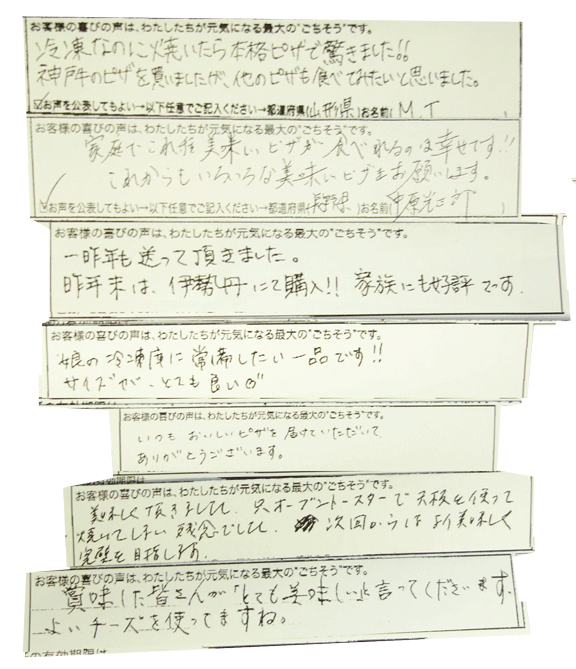 お客様の喜びの声は、わたしたちが元気になる最大の"ごちそう"です。
冷凍なのに焼いたら本格ピザで驚きました!!
神戸牛のピザを買いましたが、他のピザも食べてみたいと思いました。
お声を公表してもよい→以下任意でご記入ください→都道府県(山形県)お名前(M.T )
お客様の喜びの声は、わたしたちが元気になる最大の"ごちそう"です。
家庭でこれ程美味しいピザが食べれるのは幸せです!!
これからもいろいろな美味しいピザをお願いします。
お声を公表してもよい→以下任意でご記入ください→都道府県( )お名前( )
お客様の喜びの声は、わたしたちが元気になる最大の"ごちそう"です。
一昨年も送って頂きました。
昨年末は、伊勢丹にて購入!! 家族にも好評です.
お客様の喜びの声は、わたしたちが元気になる最大の"ごちそう"です。
娘の冷凍庫に常備したい一品です!!
サイズが、とても良い
お客様の喜びの声は、わたしたちが元気になる最大の"ごちそう"です。
いつも おいしいピザを届けていただいて
ありがとうございます。
お客様の喜びの声は、わたしたちが元気になる最大の"ごちそう"です。
美味しく頂きました。只オーブントースターで天板を使って
焼いてしまい残念でした。 次回からはより美味しく
完璧を目指します.
お客様の喜びの声は、わたしたちが元気になる最大の"ごちそう"です。
賞味した皆さんが「とても美味しい」と言ってくださいます.
よいチーズを使ってますね。
の有効期限は